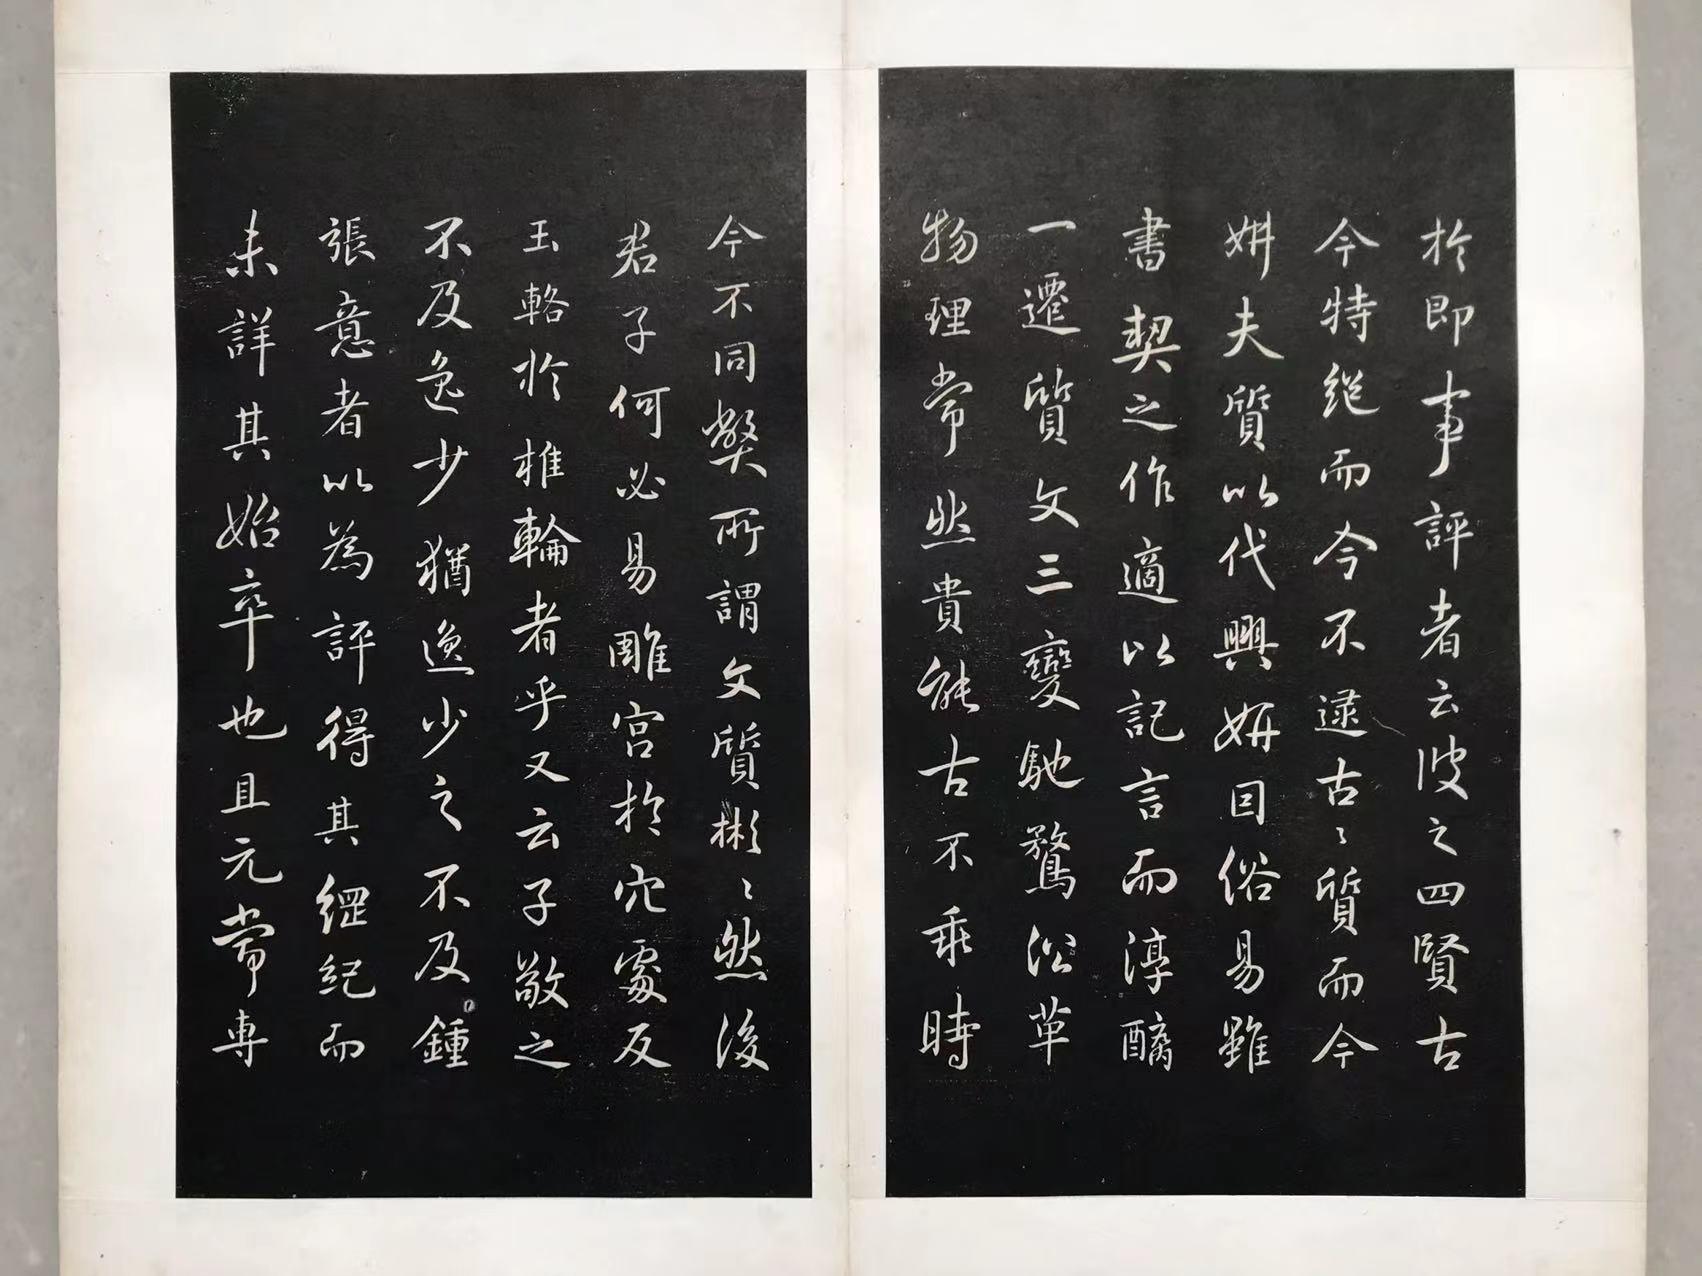 於即事評者云彼之四賢古
今特絕而今不逮古〻質而今
妍夫質以代興妍因俗易雖
書契之作適以記言而淳醨
一遷質文三變馳騖沿革
物理常然貴能古不乖時
今不同弊所謂文質彬〻然後
君子何必易雕宮於穴處反
玉輅於椎輪者乎又云子敬之
不及逸少猶逸少之不及鍾
張意者以為評得其綱紀而
未詳其始卒也且元常專